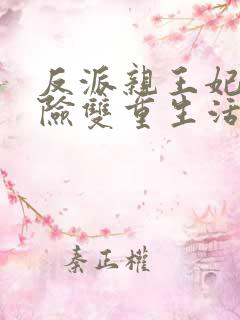 反派親王妃
險雙重生活
秦正權